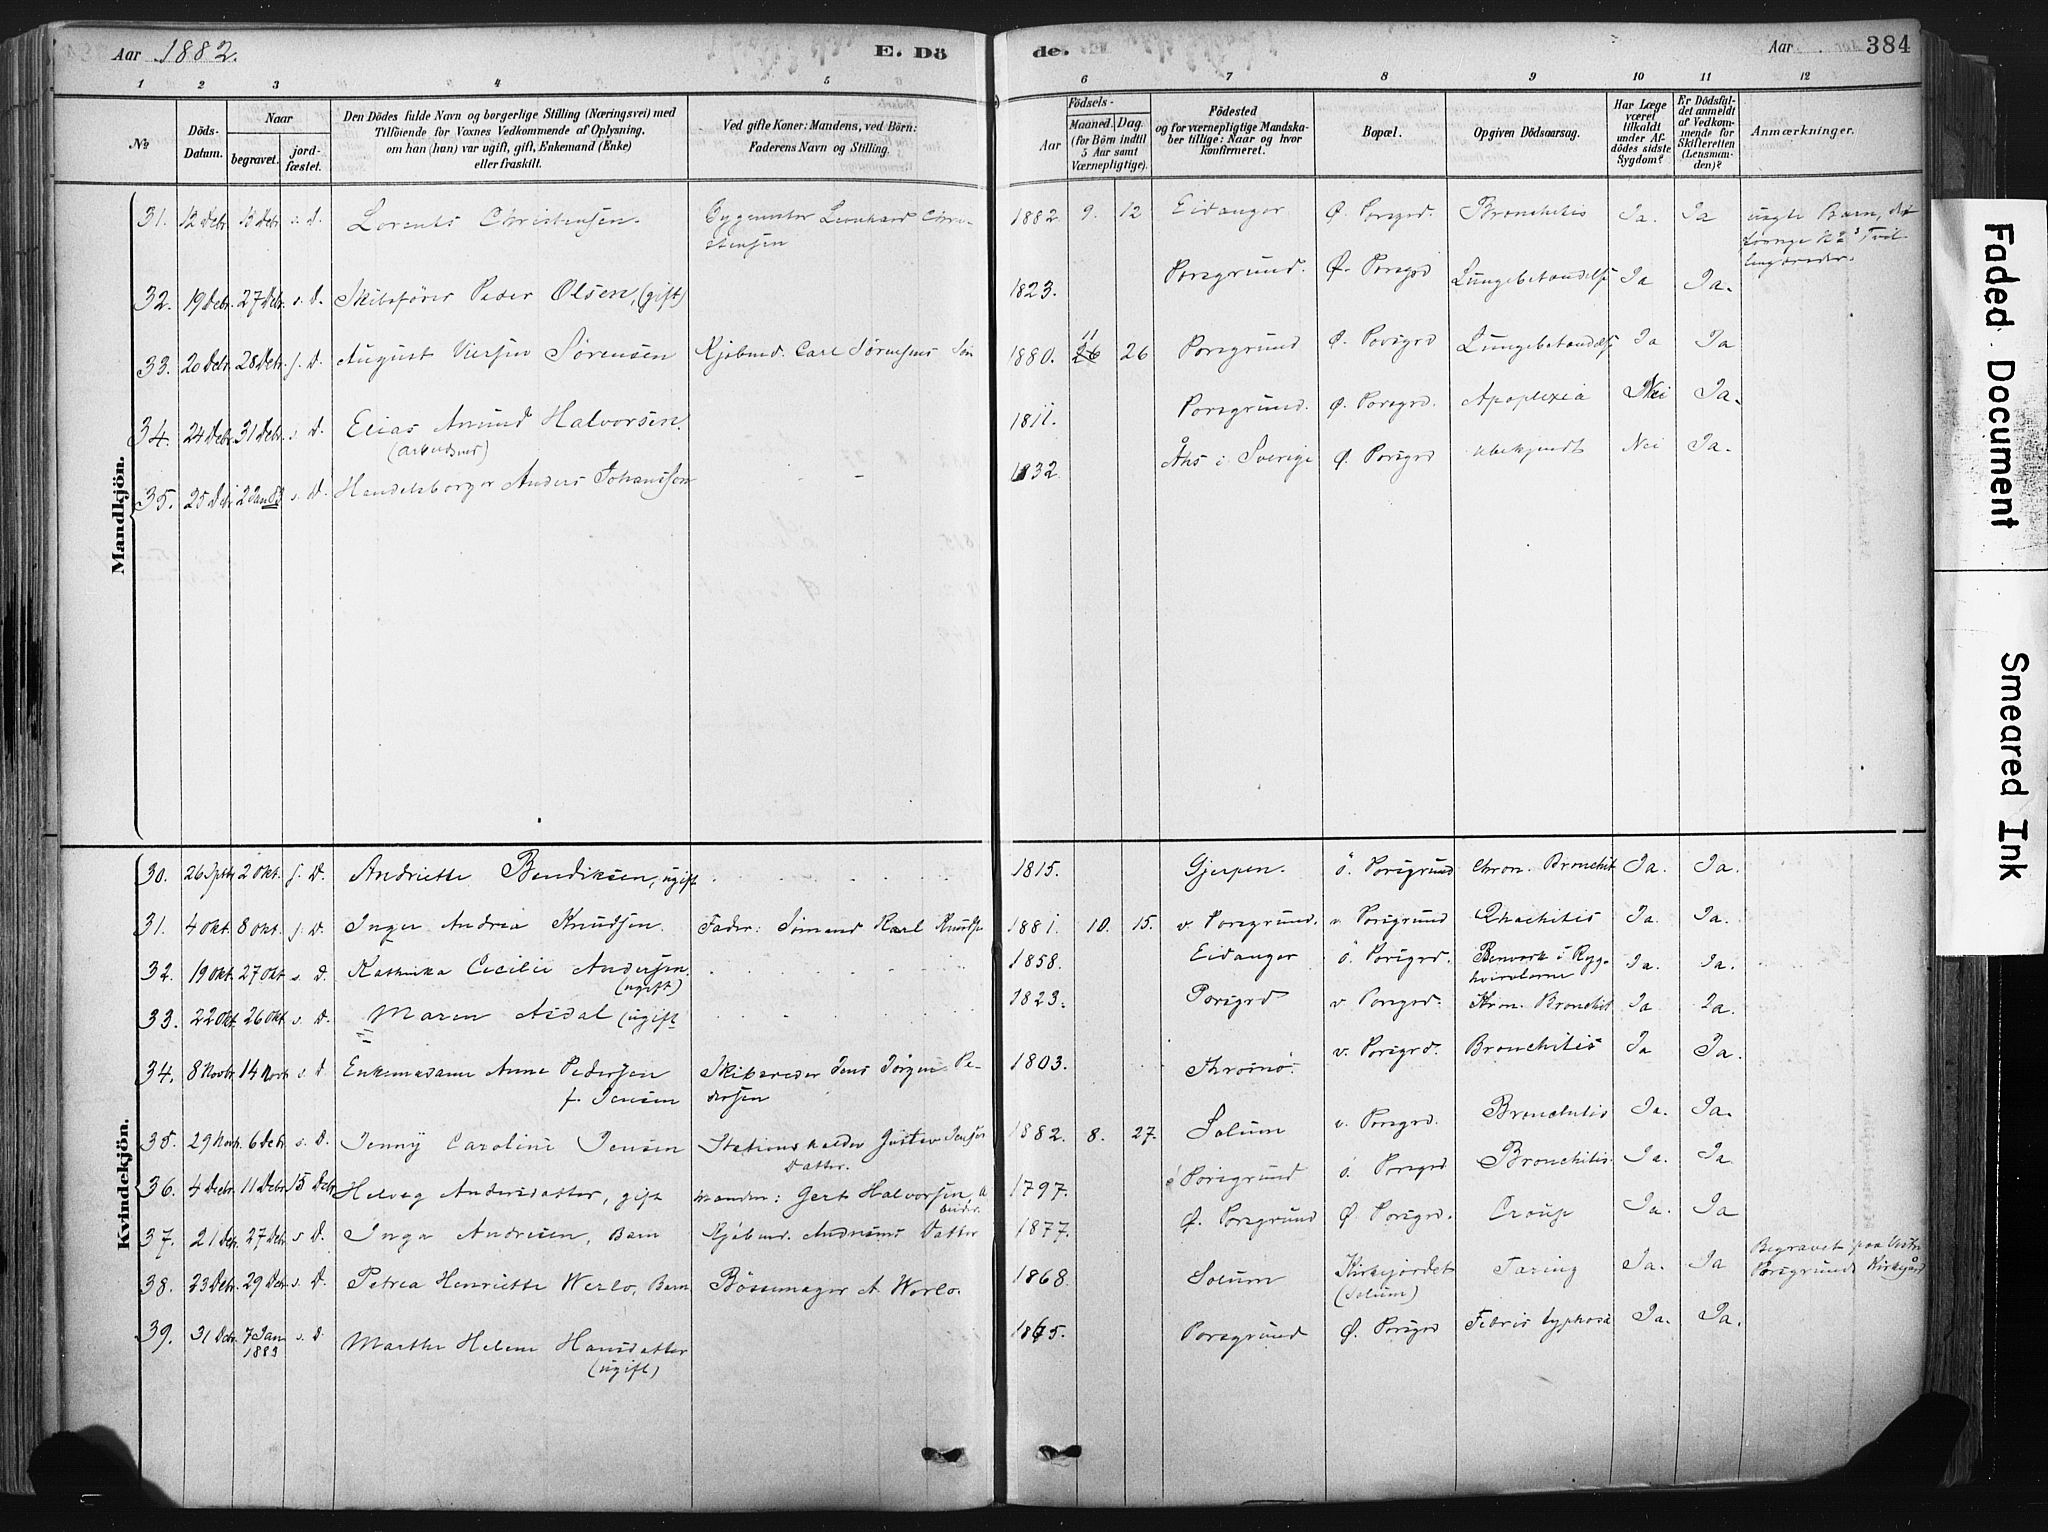 Aar 1882. E. Dö de. Aar 384
1 2 3 4 5 6 7 8 9 10 11 12
No
Döds-Datum.
Naar
begravet. jordfæstet.
Den Dödes fulde Navn og borgerlige Stilling (Næringsvei) med
Tilföiende for Voxnes Vedkommende af Oplysning.
om han (hun) var ugift, gift, Enkemand (Enke)
eller fraskilt.
Ved gifte Koner: Mandens, ved Börn:
Faderens Navn og Stilling.
Födsels-
Aar Maaned. Dag.
(for Börn indtil
5 Aar samt
Værnepligtige).
Födested
og for værnepligtige Mandska-
ber tillige: Naar og hvor
konfirmeret.
Bopæl.
Opgiven Dödsaarsag.
Har Læge
været
tilkaldt
under Af-
dödes sidste
Sygdom?
Er Dödsfal-
det anmeldt
af Vedkom-
mende for
Skifteretten
(Lensman-
den)?
Anmærkninger.
Mandkjön.
31. 12 Debr. 13 Debr. s. D. Lorents Christensen. Byggmester Leonhard Chri-
stensen 1882 9. 12 Eidanger Ø. Porsgrd. Bronchitis Ja. Ja
32. 19 Debr. 27 Debr. s. D. Skibsförer Peder Olsen, (gift) 1823. Porsgrund. Ø. Porsgrd Lungebetændelse Ja Ja.
33. 20 Debr. 28 Debr. f. D. August Viersen Sörensen Kjøbmd. Carl Sörensens Sön 1880. 11 26 26 Porsgrund Ø. Porsgrd Lungebetændelse Ja Ja
34. 24 Debr. 31 Debr. s. D. Elias Amund Halvorsen.
(arbeidsmd) 1811. Porsgrund. Ø. Porsgrd. Apoplexia Nei Ja.
35. 25 Debr. 2 Jan 83 s. D. Handelsborger Anders Johanssen - - 1832 Åhs i Sverige Ø. Porsgrd ubekjendt Nei Ja.
Kvindekjön.
30. 26 Sptb. 2 Okt. f. D. Andriette Bendiksen, ugift 1815. Gjerpen. ö. Porsgrund Chron. Bronchit Ja. Ja.
31. 4 Okt. 8 Okt. f. D. Inger Andrea Knudsen. Fader: Sömand Karl Knudsen 1881. 10. 15. v. Porsgrund. v. Porsgrund Rhachitis Ja. Ja.
32. 19 Okt. 27 Okt s. D. Kathrika Cecilie Andersen.
(ugift) 1858. Eidanger ö. Porsgrd. Benværk i Ryg-
hvirvlerne Ja. Ja.
33. 22 Okt. 26 Okt. s. D. Maren Asdal (ugift 1823. Porsgrd v. Porsgrd. Kron. Bronchit Ja Ja.
34. 8 Novbr. 14 Novb. s. D. Enkemadame Anne Pedersen
f. Jensen Skibsreder Jens Jörgen Pe-
dersen 1803. Thromö. v. Porsgrd. Bronchitis Ja Ja.
35. 29 Novb. 6 Debr. s. D. Jenny Caroline Jensen Stationsholder Gustav Jensens
Datter. 1882. 8. 27. Solum v. Porsgrd. Bronchitis Ja. Ja.
36. 4 Decbr. 11 Debr. 15 Debr. Helvig Andersdatter, gift Manden: Gert Halvorsen, a
beider. 1797. ö Porsgrund ö. Porsgrd Bronchitis. Ja. Ja.
37. 21 Debr. 27 Debr. s. D. Inga Andresen, Barn Kjöbmd. Andresens Datter 1877. Ø. Porsgrund Ø. Porsgrd. Croup Ja. Ja
38. 23 Debr. 29 Debr. s. D. Petrea Henriette Werlo, Barn Bössemager A. Werlo. 1868. Solum Kirkefjordet
(Solum) Tæring Ja. Ja Begravet paa Vestre
Porsgrunds Kirkegård
39. 31 Debr. 7 Jan
1883 s. D. Marthe Helene Hansdatter
(ugift) 1865. Porsgrund Ø. Porsgrd Febris typhosa Ja. Ja.
Faded Document
Smeared Ink